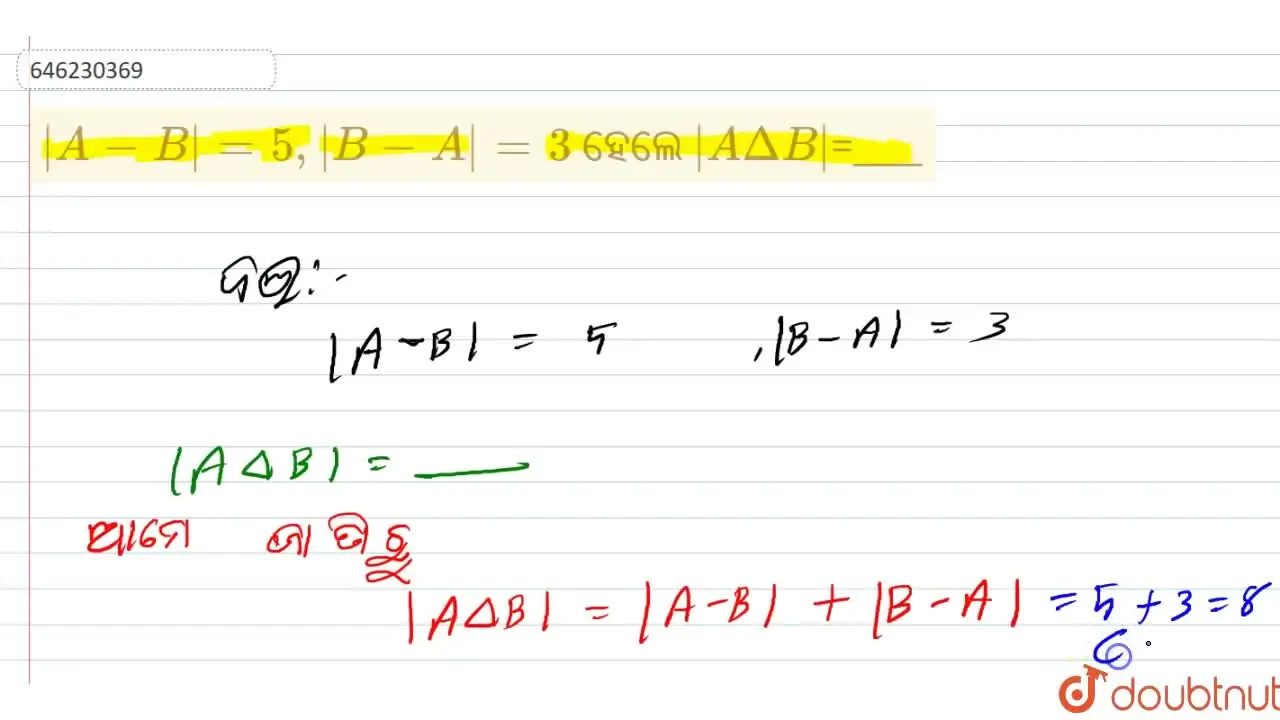 646230369
|A − B| = 5, |B − A| = 3 ହେଲେ |AΔB|=___
ଦତ୍ତ :-
|A - B| = 5 , |B - A| = 3
|A Δ B| = ___
ଆମେ ଜାଣିଛୁ
|A Δ B| = |A - B| + |B - A| = 5 + 3 = 8
doubtnut